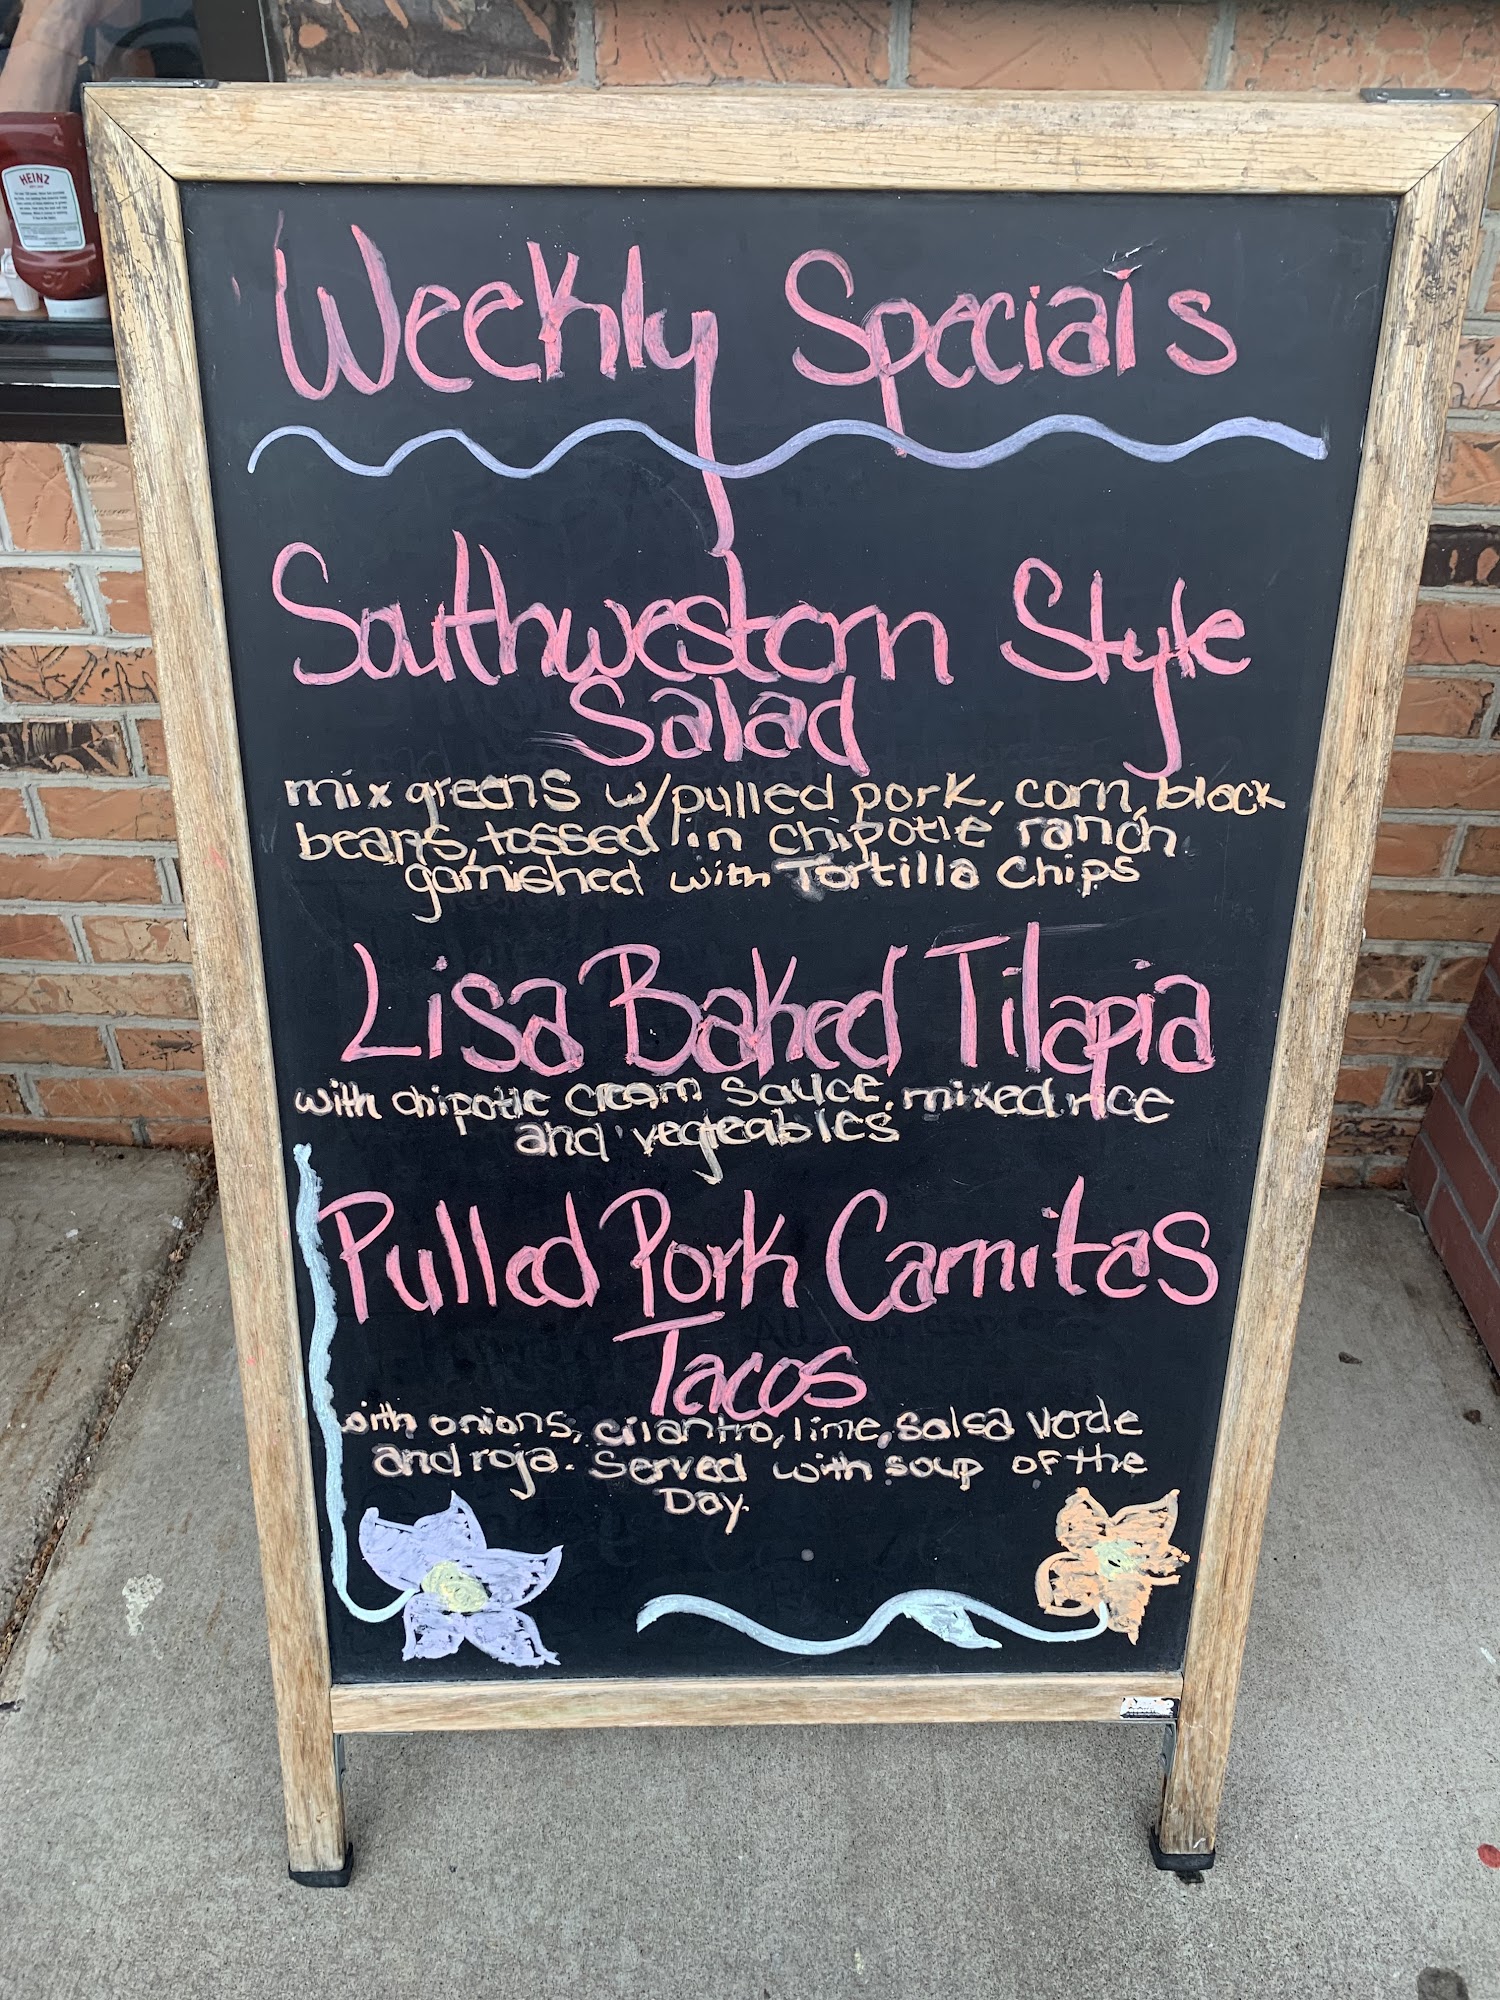 HEINZ
Weekly Specials
Southwestern Style
Salad
mix greens w/pulled pork, corn, black
beans, tossed in chipotle ranch
garnished with Tortilla Chips
Lisa Baked Tilapia
with chipotle cream sauce, mixed rice
and vegteables
Pulled Pork Carnitas
Tacos
with onions, cilantro, lime, salsa verde
and roja. Served with soup of the
Day.